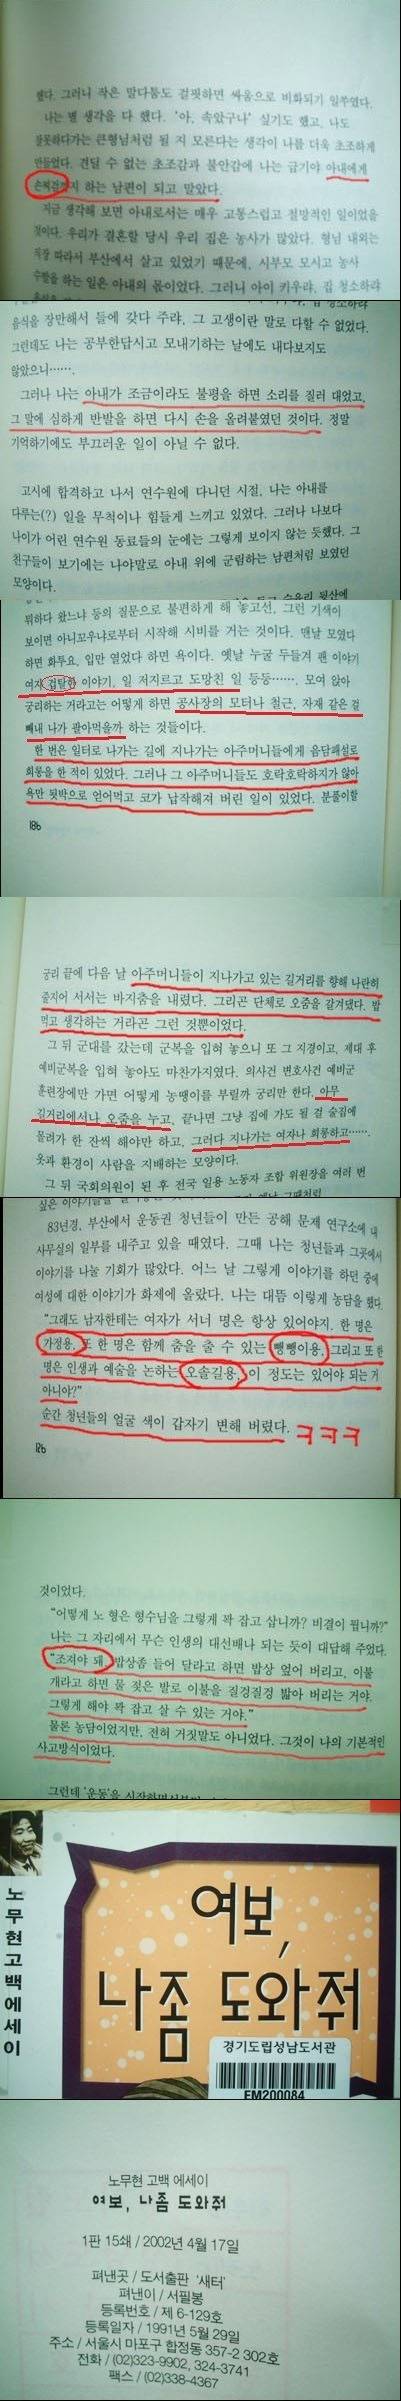 했다. 그러니 작은 말다툼도 걸핏하면 싸움으로 비화되기 일쑤였다.
나는 별 생각을 다 했다. '아, 속았구나' 싶기도 했고, 나도
잘못하다가는 큰형님처럼 될 지 모른다는 생각이 나를 더욱 초조하게
만들었다. 견딜 수 없는 초조감과 불안감에 나는 급기야 아내에게
손찌검까지 하는 남편이 되고 말았다.
지금 생각해 보면 아내로서는 매우 고통스럽고 절망적인 일이었을
것이다. 우리가 결혼할 당시 우리 집은 농사가 많았다. 형님 내외는
직장 따라서 부산에서 살고 있었기 때문에, 시부모 모시고 농사
수발을 하는 일은 아내의 몫이었다. 그러니 아이 키우랴, 집 청소하랴
음식을 장만해서 들에 갖다 주랴, 그 고생이란 말로 다할 수 없었다.
그런데도 나는 공부한답시고 모내기하는 날에도 내다보지도
않았으니…….
그러나 나는 아내가 조금이라도 불평을 하면 소리를 질러 대었고,
그 말에 심하게 반발을 하면 다시 손을 올려붙였던 것이다. 정말
기억하기에도 부끄러운 일이 아닐 수 없다.
고시에 합격하고 나서 연수원에 다니던 시절, 나는 아내를
다루는(?) 일을 무척이나 힘들게 느끼고 있었다. 그러나 나보다
나이가 어린 연수원 동료들의 눈에는 그렇게 보이지 않는 듯했다. 그
친구들이 보기에는 나야말로 아내 위에 군림하는 남편처럼 보였던
모양이다.
뭐하다 왔느냐 등의 질문으로 불편하게 해 놓고선, 그런 기색이
보이면 아니꼬우냐로부터 시작해 시비를 거는 것이다. 맨날 모였다
하면 화투요, 입만 열었다 하면 욕이다. 옛날 누굴 두들겨 팬 이야기
여자 겁탈한 이야기, 일 저지르고 도망친 일 등등……. 모여 앉아
궁리하는 거라고는 어떻게 하면 공사장의 모터나 철근, 자재 같은 걸
빼내 나가 팔아먹을까 하는 것들이다.
한 번은 일터로 나가는 길에 지나가는 아주머니들에게 음담패설로
희롱을 한 적이 있었다. 그러나 그 아주머니들도 호락호락하지가 않아
욕만 됫박으로 얻어먹고 코가 납작해져 버린 일이 있었다. 분풀이할
186
궁리 끝에 다음 날 아주머니들이 지나가고 있는 길거리를 향해 나란히
줄지어 서서는 바지춤을 내렸다. 그리곤 단체로 오줌을 갈겨댔다. 밥
먹고 생각하는 거라곤 그런 것뿐이었다.
그 뒤 군대를 갔는데 군복을 입혀 놓으니 또 그 지경이고, 제대 후
예비군복을 입혀 놓아도 마찬가지였다. 의사건 변호사건 예비군
훈련장에만 가면 어떻게 농땡이를 부릴까 궁리만 한다. 아무
길거리에서나 오줌을 누고, 끝나면 그냥 집에 가도 될 걸 술집에
몰려가 한 잔씩 해야만 하고, 그러다 지나가는 여자나 희롱하고…….
옷과 환경이 사람을 지배하는 모양이다.
그 뒤 국회의원이 된 후 전국 일용 노동자 조합 위원장을 여러 번
83년경, 부산에서 운동권 청년들이 만든 공해 문제 연구소에 내
사무실의 일부를 내주고 있을 때였다. 그때 나는 청년들과 그곳에서
이야기를 나눌 기회가 많았다. 어느 날 그렇게 이야기를 하던 중에
여성에 대한 이야기가 화제에 올랐다. 나는 대뜸 이렇게 농담을 했다.
"그래도 남자한테는 여자가 서너 명은 항상 있어야지. 한 명은
가정용, 또 한 명은 함께 춤을 출 수 있는 뺑뺑이용, 그리고 또 한
명은 인생과 예술을 논하는 오솔길용, 이 정도는 있어야 되는 거
아니야?"
순간 청년들의 얼굴 색이 갑자기 변해 버렸다. ㅋㅋㅋ
126
것이었다.
"어떻게 노 형은 형수님을 그렇게 꽉 잡고 삽니까? 비결이 뭡니까?"
나는 그 자리에서 무슨 인생의 대선배나 되는 듯이 대답해 주었다.
"조져야 돼. 밥상좀 들어 달라고 하면 밥상 엎어 버리고, 이불
개라고 하면 물 젖은 발로 이불을 질겅질겅 밟아 버리는 거야.
그렇게 해야 꽉 잡고 살 수 있는 거야."
물론 농담이었지만, 전혀 거짓말도 아니었다. 그것이 나의 기본적인
사고방식이었다.
그런데 '운동'을 시작하면서부터
노무현 고백 에세이
여보,
나 좀 도와줘
경기도립성남도서관
EM200084
노무현 고백 에세이
여보, 나 좀 도와줘
1판 15쇄 / 2002년 4월 17일
펴낸곳 / 도서출판 '새터'
펴낸이 / 서필봉
등록번호 / 제 6-129호
등록일자 / 1991년 5월 29일
주소 / 서울시 마포구 합정동 357-2 302호
전화 / (02)323-9902, 324-3741
팩스 / (02)338-4367